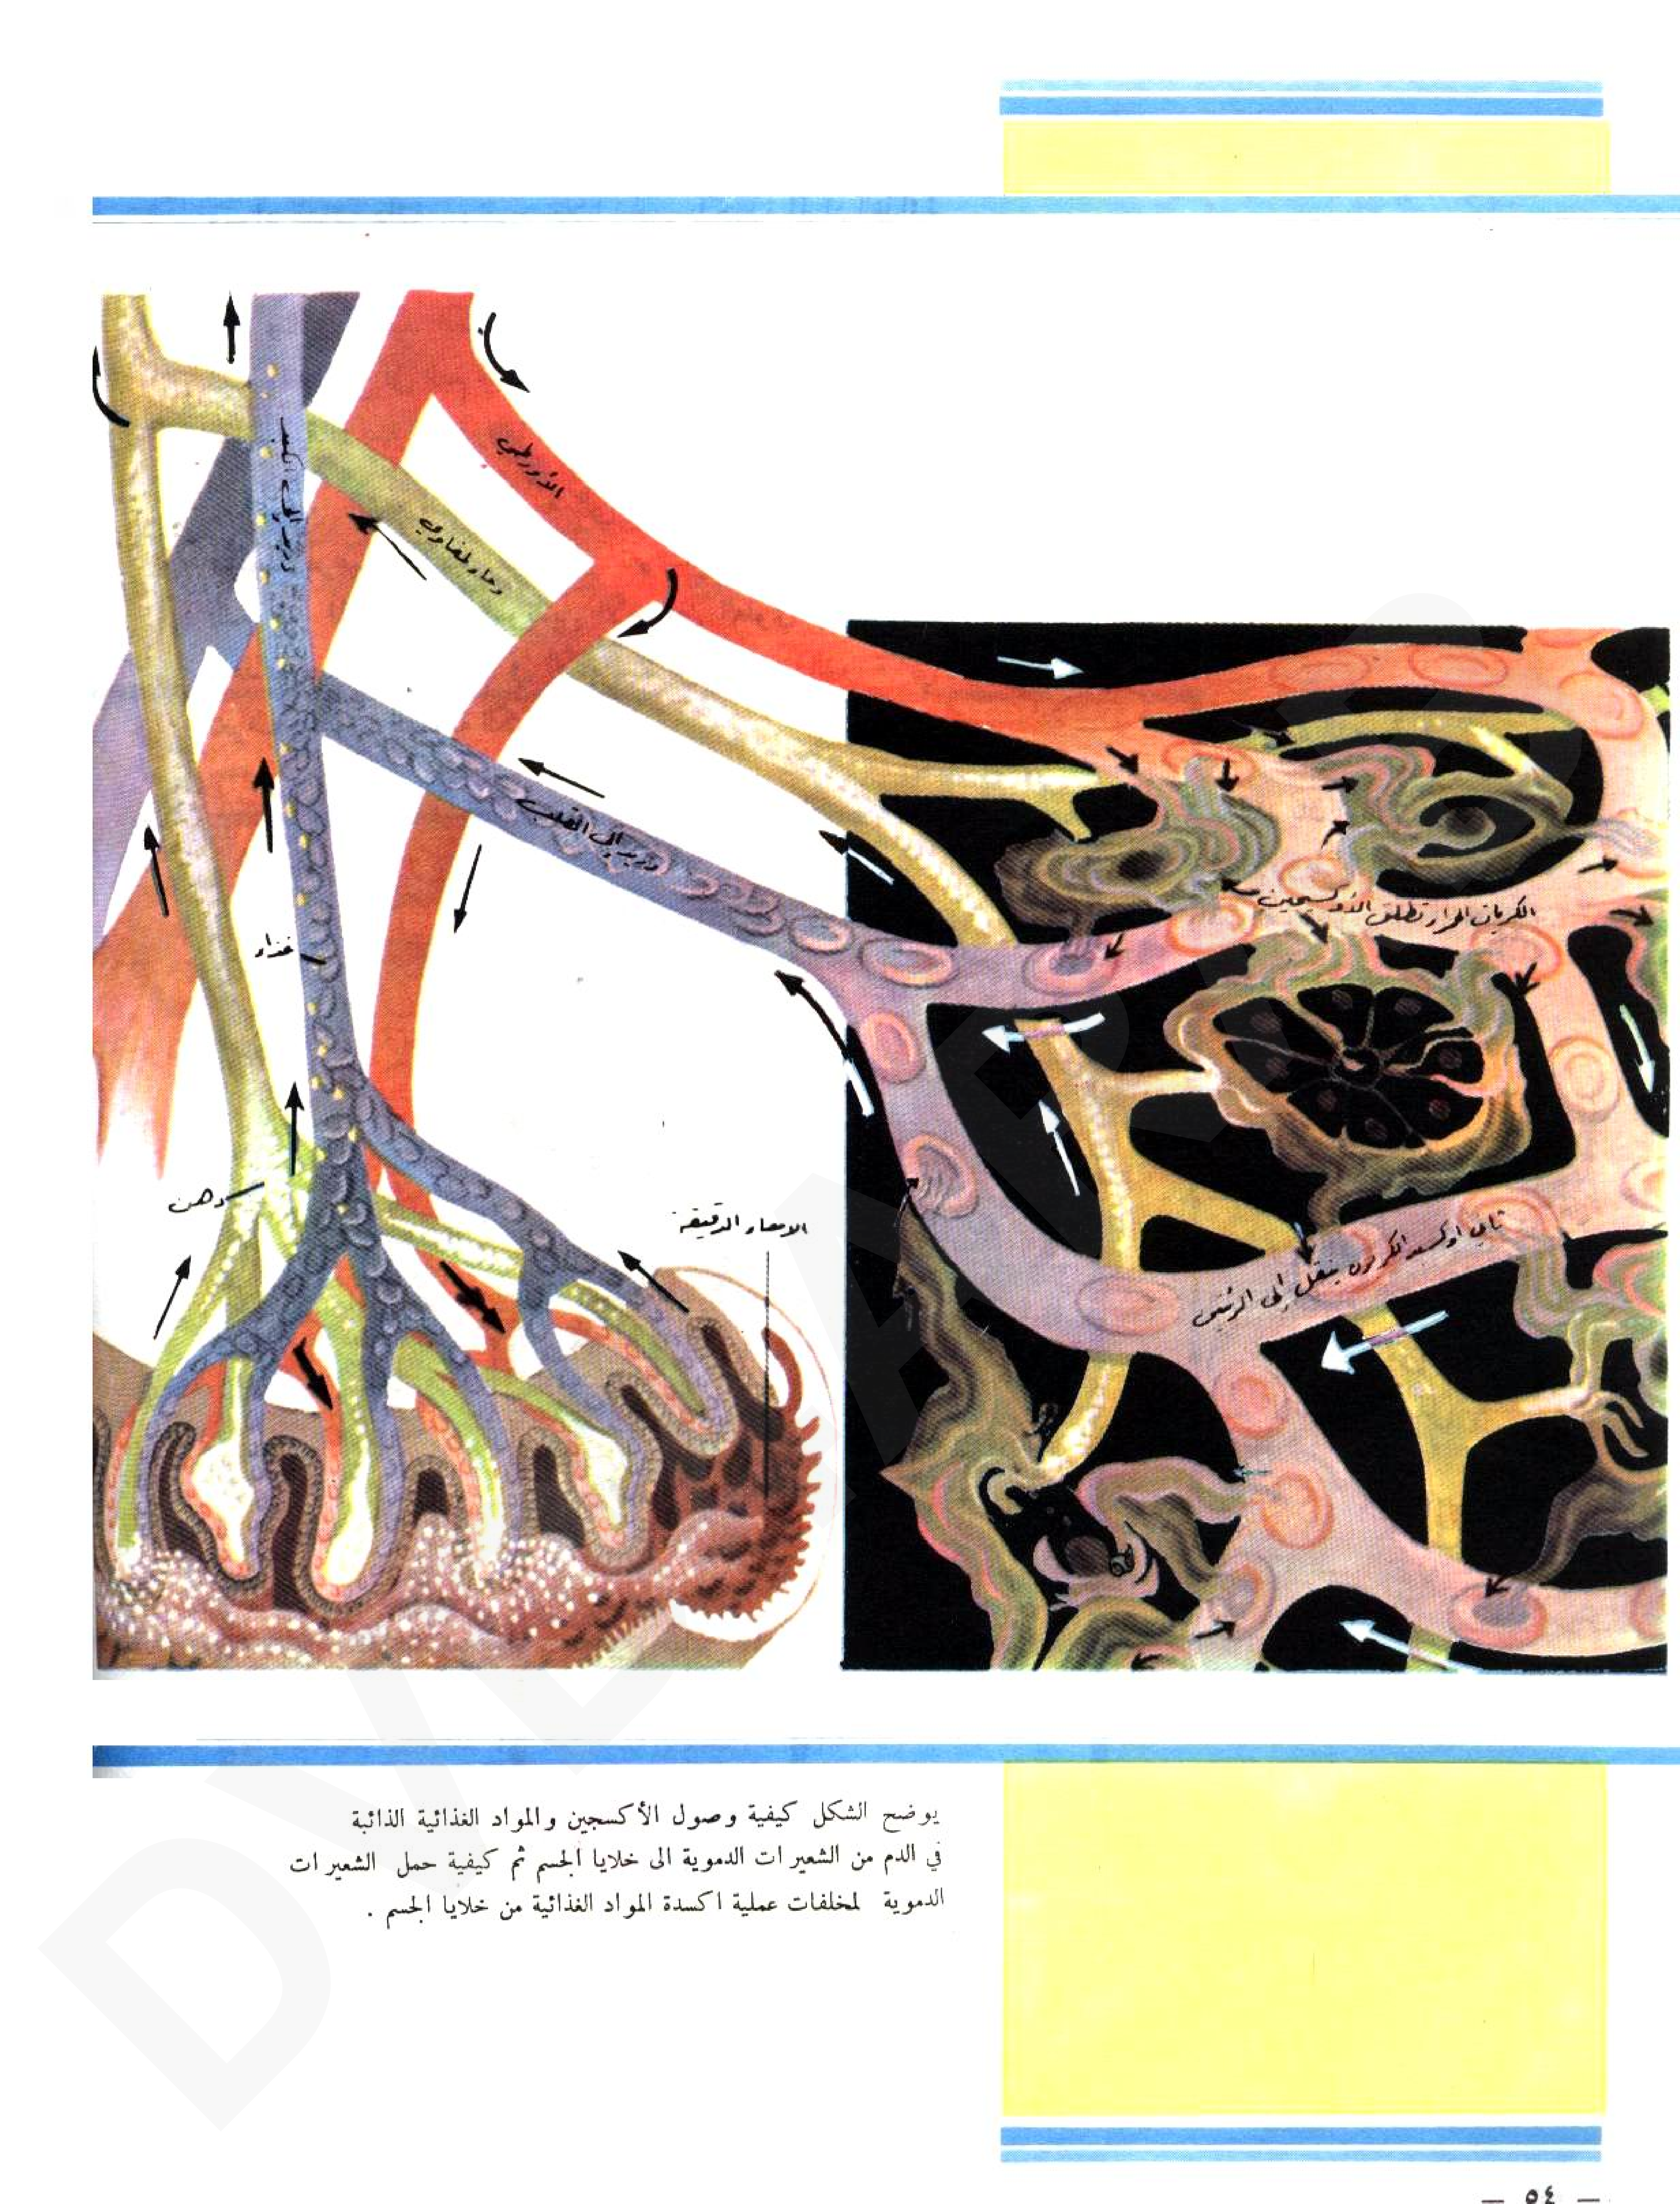 الأورطي
وعاء لمفاوي
وريد إلى الكبد
وريد إلى القلب
الكريات الحمراء تطلق الأوكسيجين
غذاء
دهن
الامعاء الدقيقة
ثاني اوكسيد الكربون ينقل إلى الرئتين
يوضح الشكل كيفية وصول الأكسجين والمواد الغذائية الذائبة
في الدم من الشعيرات الدموية الى خلايا الجسم ثم كيفية حمل الشعيرات
الدموية لمخلفات عملية اكسدة المواد الغذائية من خلايا الجسم .
— ٥٤ —